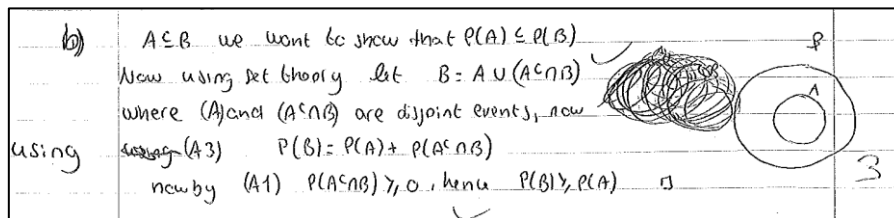 b) A⊆B we want to show that P(A) ≤ P(B)
Now using set theory let B = A ∪ (Aᶜ∩B)
where (A) and (Aᶜ∩B) are disjoint events, now
using (A3) P(B) = P(A) + P(Aᶜ∩B)
now by (A1) P(Aᶜ∩B) ≥ 0, hence P(B) ≥ P(A) □
A
3